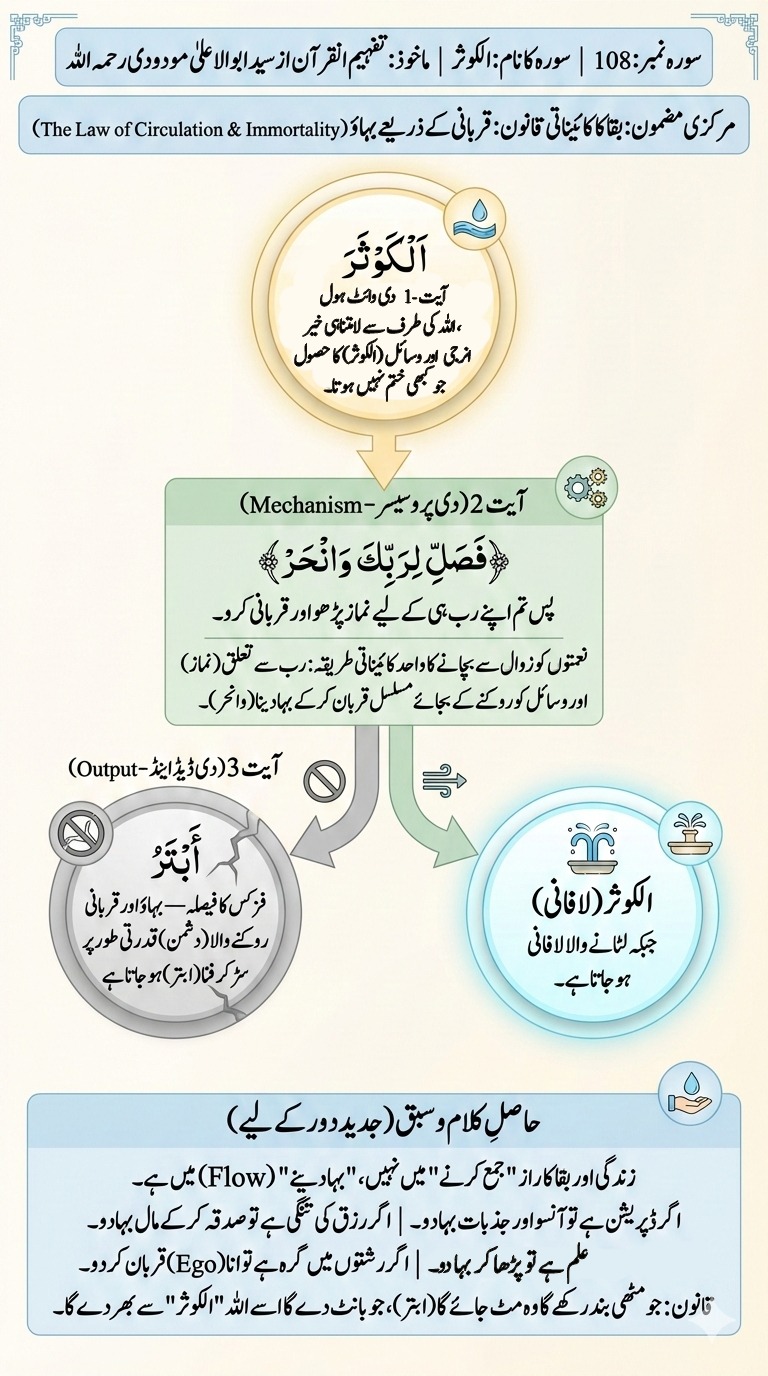 سورہ نمبر: 108 | سورہ کا نام: الکوثر | ماخوذ: تفہیم القرآن از سید ابوالاعلیٰ مودودی رحمہ اللہ
مرکزی مضمون: بقا کا کائیناتی قانون: قربانی کے ذریعے بہاؤ (The Law of Circulation & Immortality)
اَلْكَوْثَرَ
آیت-1 دی وائٹ ہول
،اللہ کی طرف سے لامتناہی خیر
انرجی اور وسائل (الکوثر) کا حصول
جو کبھی ختم نہیں ہوتا۔
آیت 2 (دی پروسیسر-Mechanism)
﴿فَصَلِّ لِرَبِّكَ وَانْحَرْ﴾
پس تم اپنے رب ہی کے لیے نماز پڑھو اور قربانی کرو۔
نعمتوں کو زوال سے بچانے کا واحد کائیناتی طریقہ: رب سے تعلق (نماز)
اور وسائل کو روکنے کے بجائے مسلسل قربان کر کے بہا دینا (وانحر)۔
آیت 3 (دی ڈیڈ اینڈ-Output)
أَبْتَرُ
فزکس کا فیصلہ — بہاؤ اور قربانی
روکنے والا (دشمن) قدرتی طور پر
سڑ کر فنا (ابتر) ہو جاتا ہے
الکوثر (لافانی)
جبکہ لٹانے والا لافانی
ہو جاتا ہے۔
حاصلِ کلام و سبق (جدید دور کے لیے)
زندگی اور بقا کا راز "جمع کرنے" میں نہیں، "بہا دینے" (Flow) میں ہے۔
اگر ڈپریشن ہے تو آنسو اور جذبات بہا دو۔ | اگر رزق کی تنگی ہے تو صدقہ کر کے مال بہا دو۔
علم ہے تو پڑھا کر بہا دو۔ | اگر رشتوں میں گرہ ہے تو انا (Ego) قربان کر دو۔
قانون: جو مٹھی بند رکھے گا وہ مٹ جائے گا (ابتر)، جو بانٹ دے گا اسے اللہ "الکوثر" سے بھر دے گا۔